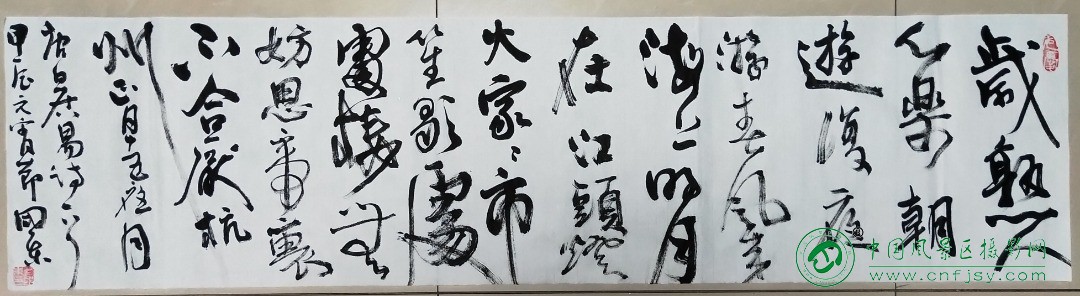 歲熟人
心樂朝
遊復夜
游春風来
海上明月
在江頭燈
火家〻市
笙歌處
處樓無
妨思帝裏
不合厭杭
州 正月十五夜月
唐白居易诗
甲辰元宵節
中国风景区摄影网
www.cnfjsy.com